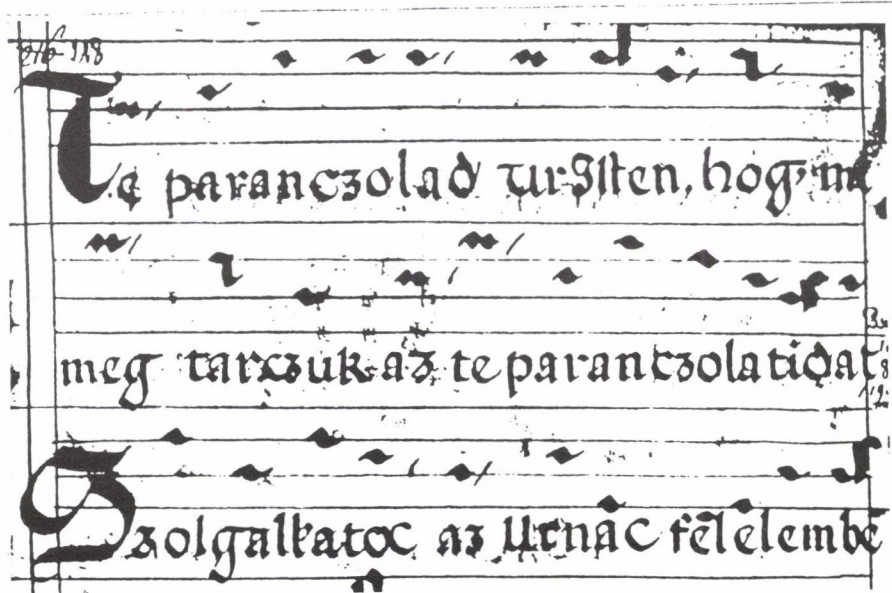 Te paranczolad UrIsten, hog, mi
meg tarczuk az te paranczolatidat
Szolgalkatoc az Urnac felelembē